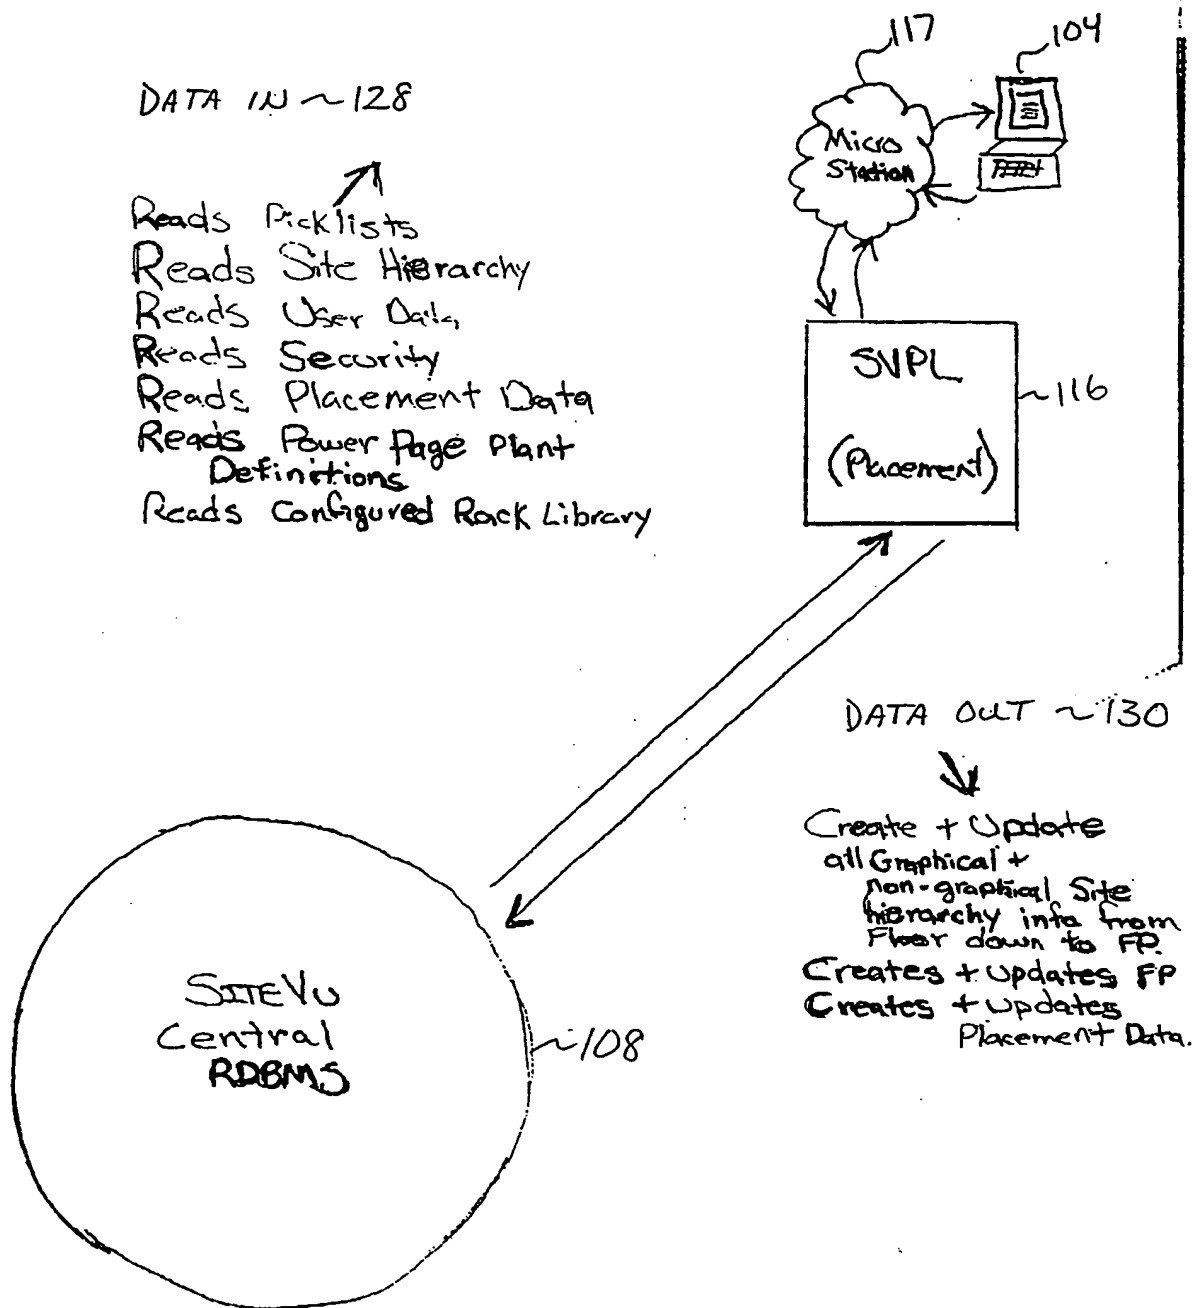 DATA IN ~128
Reads Picklists
Reads Site Hierarchy
Reads User Data
Reads Security
Reads Placement Data
Reads Power Page Plant
Definitions
Reads Configured Rack Library
117
104
Micro
Station
SVPL
(Placement)
~116
DATA OUT ~130
Create + Update
all Graphical +
non-graphical Site
hierarchy info from
Floor down to FP.
Creates + Updates FP
Creates + Updates
Placement Data.
SITEVU
Central
RDBMS
~108